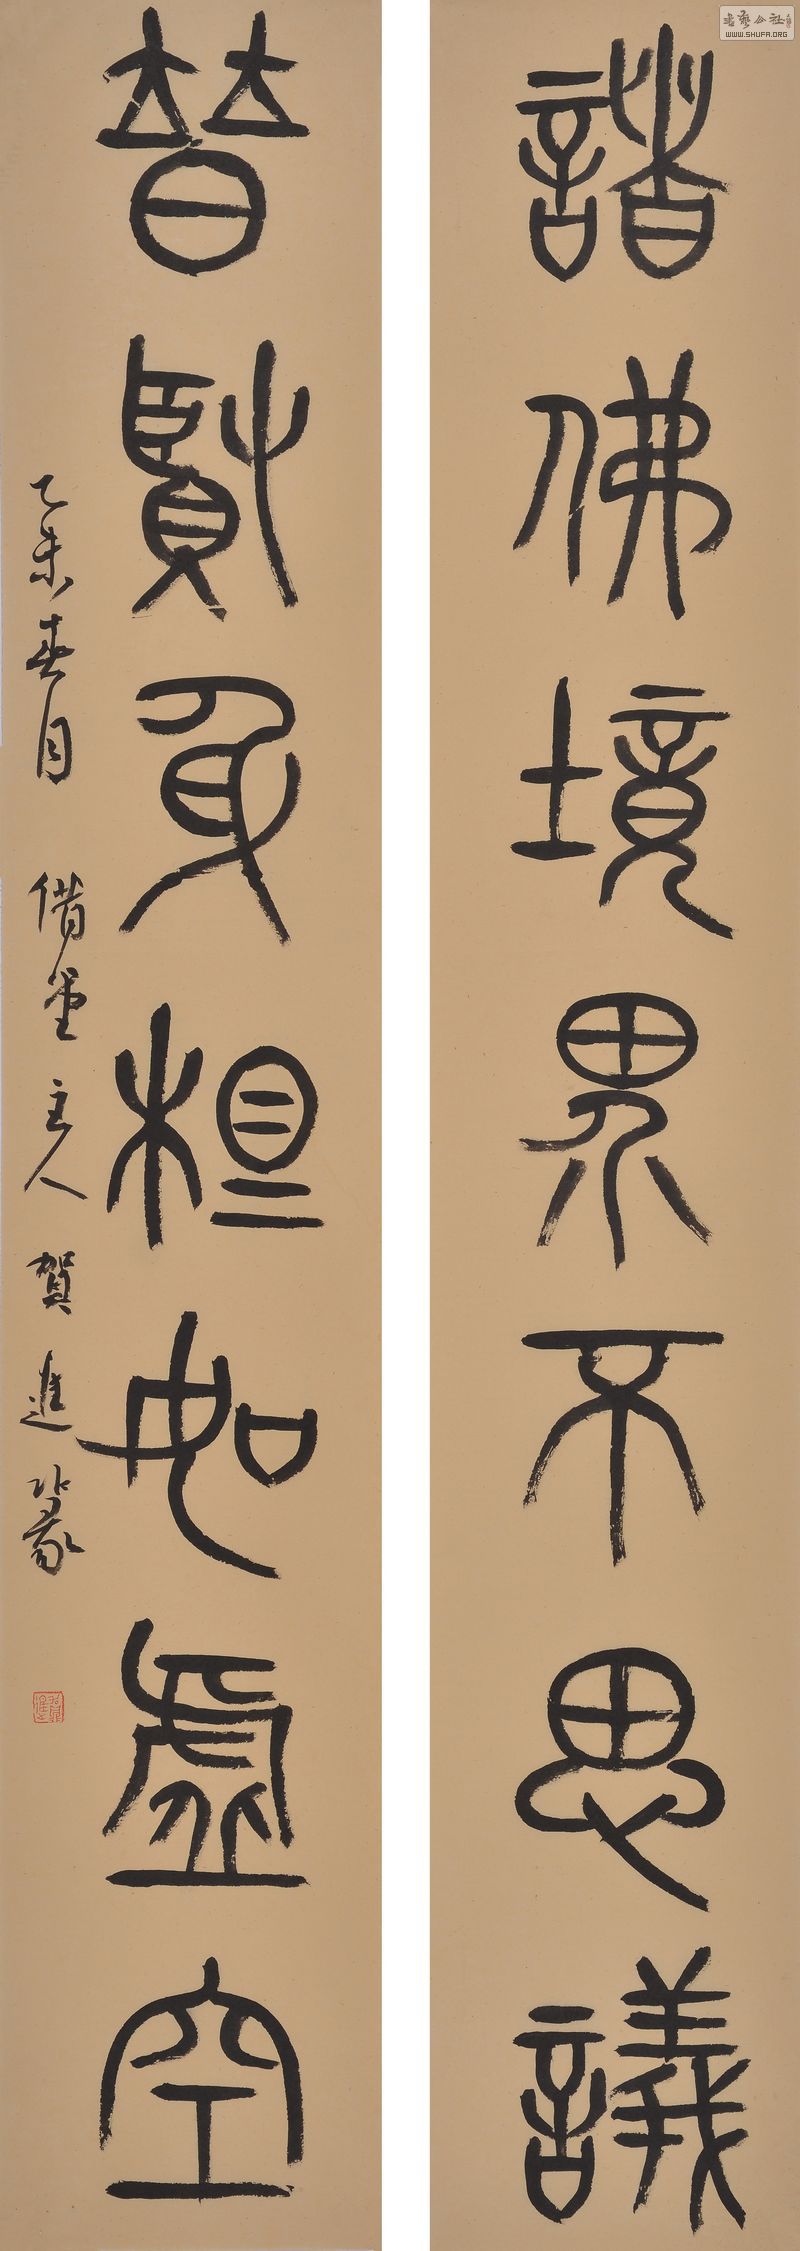 書藝公社
WWW.SHUFA.ORG
諸佛境界不思議
普賢身相如虛空
乙未春月 借主人 賀進篆